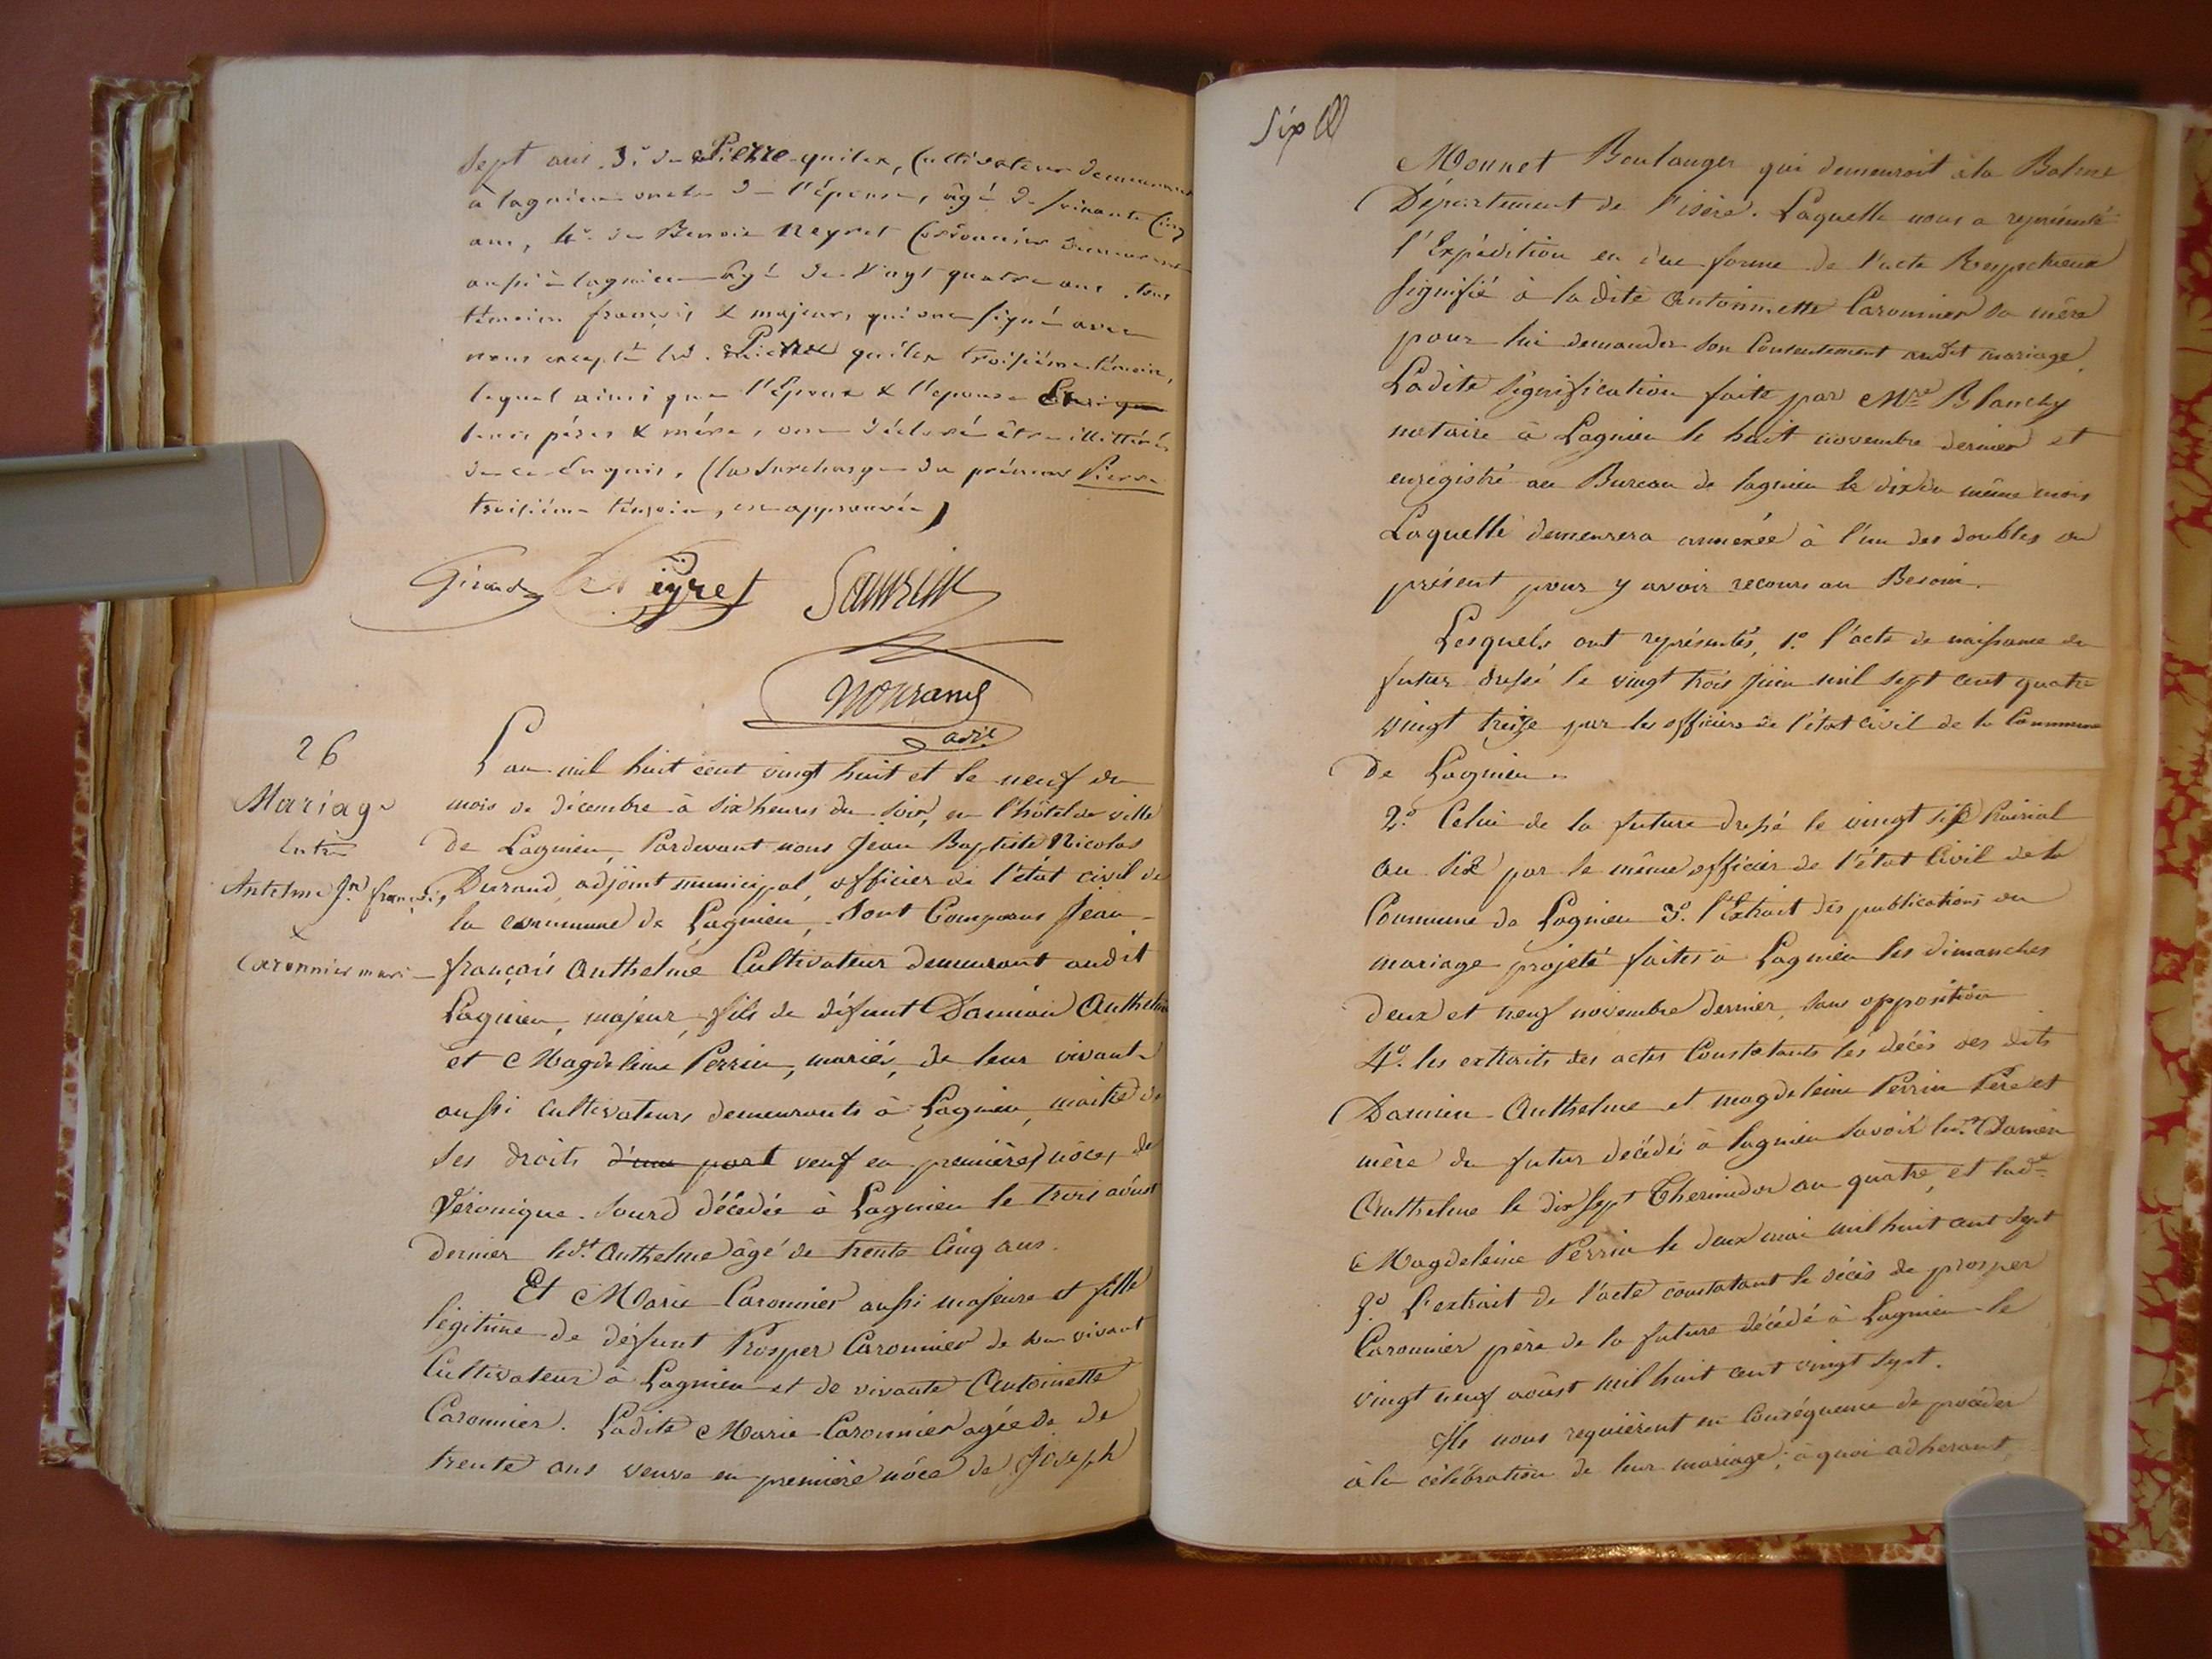 Sept ans. 3.° de Pierre quiler, Cultivateur demeurant
à lagnieu oncle de l'épouse, âgé de soixante Cinq
ans, 4.° de Benoit Neyret Cordonnier demeurant
aussi à lagnieu âgé de vingt quatre ans. tous
témoins français & majeurs, qui ont signé avec
nous excepté led. Pierre quiler troisième témoin,
lequel ainsi que l'Epoux & l'épouse
leurs pères & mère, ont déclaré être illittérés
de ce Enquis. (la Surcharge du prénom Pierre
troisième témoin, est approuvée)
Girard Neyret Saurin
Durand
adj.t
26
Mariage
Entre
Antelme Jn français
&
Caronnier marie
L'an mil huit cent vingt huit et le neuf du
mois de décembre à six heures du soir, en l'hôtel de ville
de Lagnieu, Pardevant nous Jean Baptiste Nicolas
Durand, adjoint municipal, officier de l'état civil de
la commune de Lagnieu, Sont Comparus Jean-
françois Anthelme Cultivateur demeurant audit
Lagnieu, majeur, fils de défunt Damien Anthelme
et Magdeleine Perrin, mariés, de leur vivant
aussi cultivateurs demeurants à Lagnieu, maitre de
ses droits d'une part veuf en premières nôces de
Véronique Sourd décédée à Lagnieu le trois août
dernier led.t Anthelme âgé de trente Cinq ans.
Et Marie Caronnier aussi majeure et fille
légitime de défunt Prosper Caronnier de son vivant
Cultivateur à Lagnieu et de vivante Antoinette
Caronnier. Ladite Marie Caronnier agée de de
trente ans veuve en première nôce de Joseph
Six
Monnet Boulanger qui demeuroit à la Balme
Département de l'isère. Laquelle nous a représenté
l'Expédition en due forme de l'acte Respectueux
signifié à ladite Antoinette Caronnier sa mère
pour lui demander son Consentement audit mariage.
Ladite signification faite par Mre Blanchy
notaire à Lagnieu le huit novembre dernier et
enregistré au Bureau de lagnieu le dix du même mois
Laquelle demeurera annexée à l'un des doubles du
présent pour y avoir recours au Besoin.
Lesquels ont représentés, 1.° l'acte de naissance du
futur dressé le vingt trois juin mil sept cent quatre
vingt treize par les officiers de l'état civil de la Commune
de Lagnieu.
2.° Celui de la future dressé le vingt six Prairial
an Six par le même officier de l'état Civil de la
Commune de Lagnieu 3.° l'Extrait des publications du
mariage projeté faites à Lagnieu les dimanches
deux et neuf novembre dernier, sans opposition
4.° les extraits des actes Constatants les décès des dits
Damien Anthelme et magdeleine Perrin Père et
mère du futur décédés à lagnieu Savoir led.t Damien
Anthelme le dix sept Thermidor an quatre, et lad.e
Magdeleine Perrin le deux mai mil huit cent sept
5.° L'extrait de l'acte constatant le décès de prosper
Caronnier père de la future décédé à Lagnieu le
vingt neuf août mil huit cent vingt sept.
Ils nous requièrent en Conséquence de procéder
à la célébration de leur mariage; à quoi adhérant,